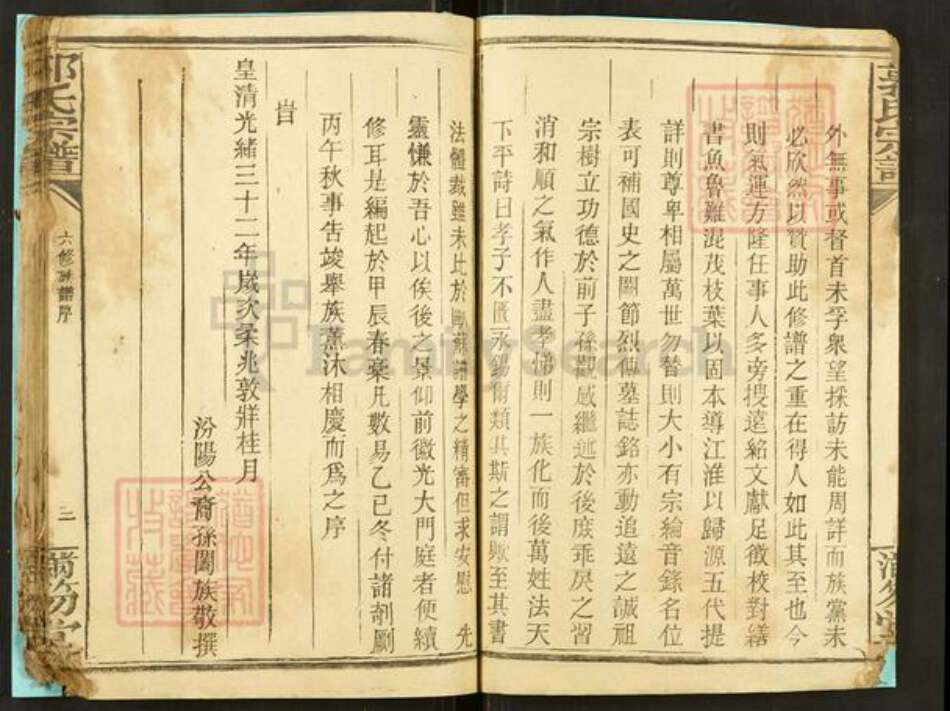 外無事或督首未孚衆望採訪未能周詳而族黨未
必欣然以贊助此修譜之重在得人如此其至也今
則氣運方隆任事人多旁搜遠紹文獻足徵校對繕
書魚魯難混茂枝葉以固本導江淮以歸源五代提
詳則尊卑相屬萬世勿替則大小有宗綸音錄名位
表可補國史之闕節烈傳墓誌銘亦動追遠之誠祖
宗樹立功德於前子孫觀感繼述於後庶乖戾之習
消和順之氣作人盡孝悌則一族化而後萬姓法天
下平詩曰孝子不匱永錫爾類其斯之謂歟至其書
法體裁雖未比於歐蘇譜學之精審但求安慰先
靈慊於吾心以俟後之景仰前徽光大門庭者便續
修耳是編起於甲辰春稾凡數易乙巳冬付諸剞劂
丙午秋事告竣舉族薰沐相慶而爲之序
旹
皇清光緒三十二年歲次柔兆敦牂桂月
汾陽公裔孫闔族敬撰
郭氏宗譜
六修族譜序
二
滿笏堂
FamilySearch